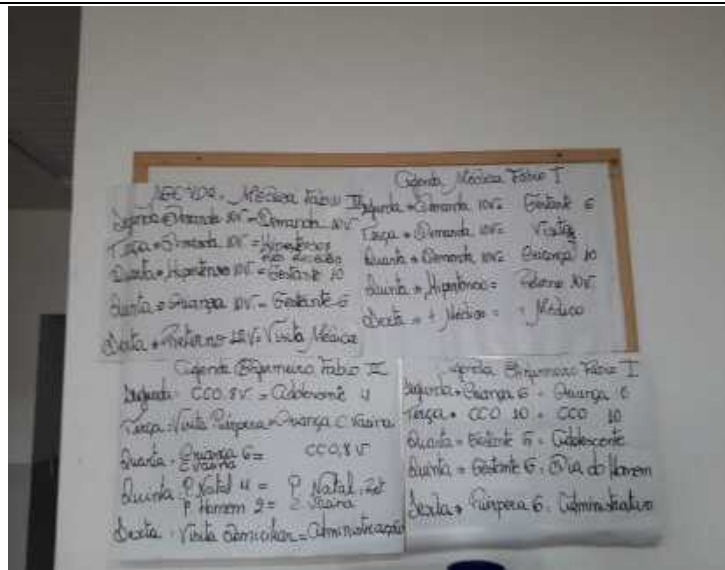 AGENDA - Médica Fabio II
Segunda = Demanda 10V = Demanda 10V
Terça = Demanda 10V = Hipertenso
Quarta = Hipertenso 10V = Gestante 10
Quinta = Criança 10V = Gestante 6
Sexta = Retorno 12V = Visita Médica
Agenda Médica Fabio I
Segunda = Demanda 10V = Gestante 6
Terça = Demanda 10V = Visita
Quarta = Demanda 10V = Criança 10
Quinta = Hipertenso = Retorno 10V
Sexta = + Médico = + Médico
Agenda Enfermeiro Fabio II
Segunda: CCO, 8V = Adolescente 4
Terça = Visita Puérpera = Criança C Vasina
Quarta = Criança 6 = CCO, 8V
C Vasina
Quinta = P Natal 4 = P Natal
P Homem 2 = C Vasina
Sexta = Visita Domiciliar = Administração
Agenda Enfermeiro Fabio I
Segunda = Criança 6 = Criança 6
Terça = CCO 10 = CCO 10
Quarta = Gestante 6 = Adolescente
Quinta = Gestante 6 = Dia do Homem
Sexta = Puérpera 6 = Administrativo